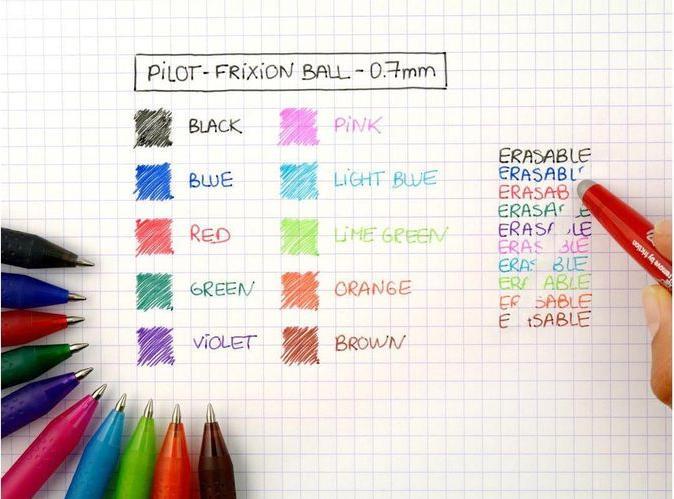 PILOT-FRIXION BALL-0.7mm
BLACK
BLUE
RED
GREEN
VIOLET
PINK
LIGHT BLUE
LIME GREEN
ORANGE
BROWN
ERASABLE
ERASABL
ERASAB
ERASA E
ERASA LE
ERAS BLE
ERAS BLE
ER ABLE
ER SABLE
E SABLE
remove by friction